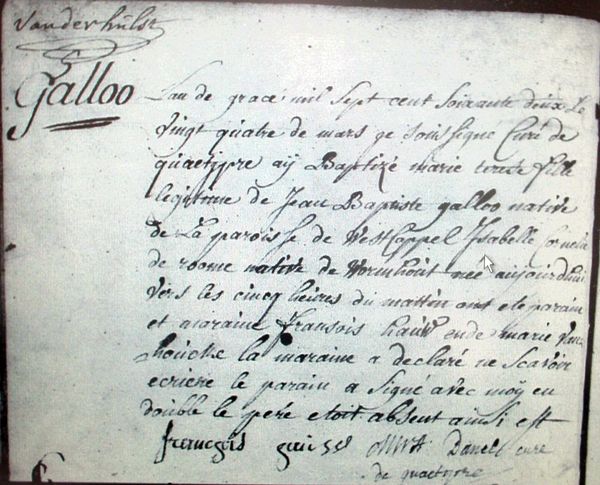 Vanderhulst
Galloo
L'an de grace mil sept cent soixante deux Le
vingt quatre de mars je soussigne Curé de
quaetypre ay Baptizé marie fille
legitime de Jean Baptiste galloo native
de La paroisse de Westcappel Isabelle Cornelia
de roome native de Wormhout née aujourdhui
vers les cincq heires du mattin ont eté parain
et maraine fransois ende marie Van
houcke la maraine a declaré ne scavoir
ecriere le parain a signé avec moÿ en
double le peré etoit absent ainsi est
françois Danel curé
de quaetypre